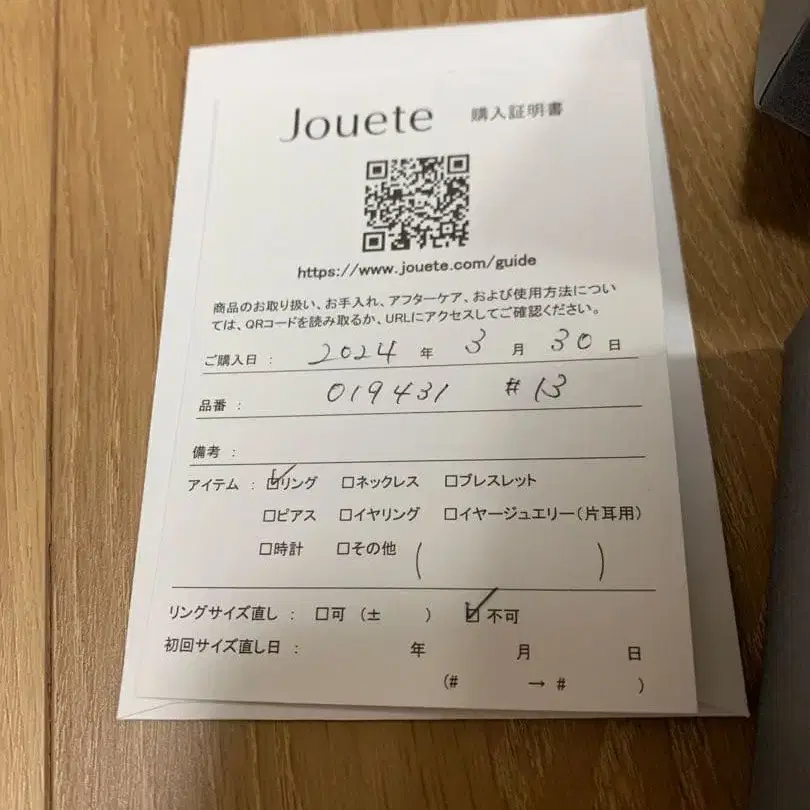 Jouete 購入証明書
https://www.jouete.com/guide
商品のお取り扱い、お手入れ、アフターケア、および使用方法につい
ては、QRコードを読み取るか、URLにアクセスしてご確認ください。
ご購入日 : 2024 年 3 月 30 日
品番 : 019431 #13
備考 :
アイテム : ☑リング □ネックレス □ブレスレット
□ピアス □イヤリング □イヤージュエリー(片耳用)
□時計 □その他 ( )
リングサイズ直し : □可 (± ) ☑不可
初回サイズ直し日 : 年 月 日
(# → # )